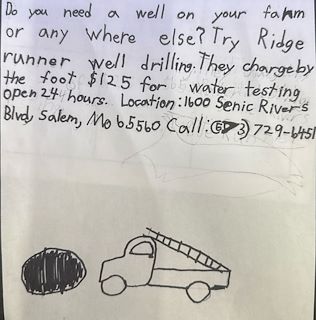 Do you need a well on your farm
or any where else? Try Ridge
runner well drilling. They charge by
the foot $125 for water testing
open 24 hours. Location: 1600 Senic Rivers
Blvd, Salem, Mo 65560 Call: (573) 729-6451